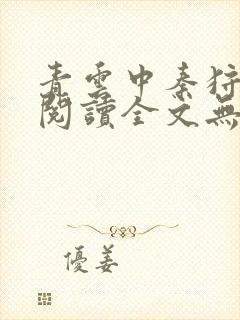 青雲中秦狩
閱讀全文無
優姜